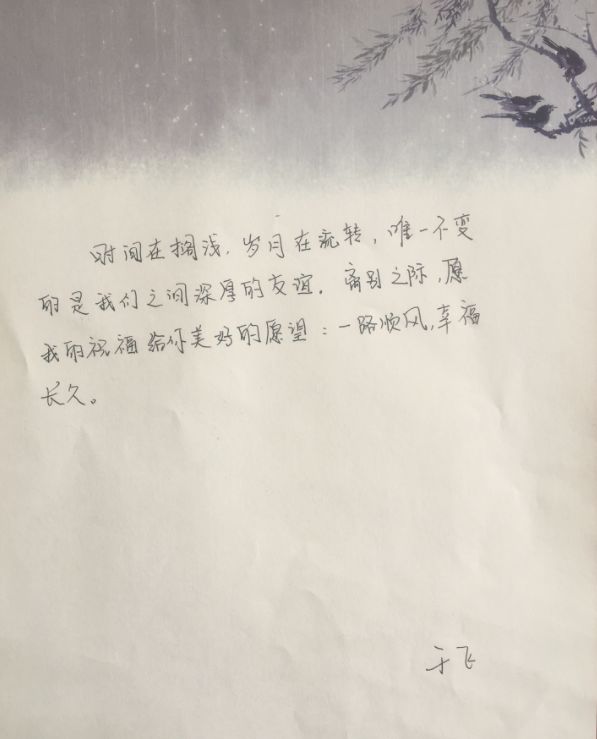 时间在搁浅，岁月在流转，唯一不变
的是我们之间深厚的友谊。离别之际，愿
我的祝福给你美好的愿望：一路顺风，幸福
长久。
于飞